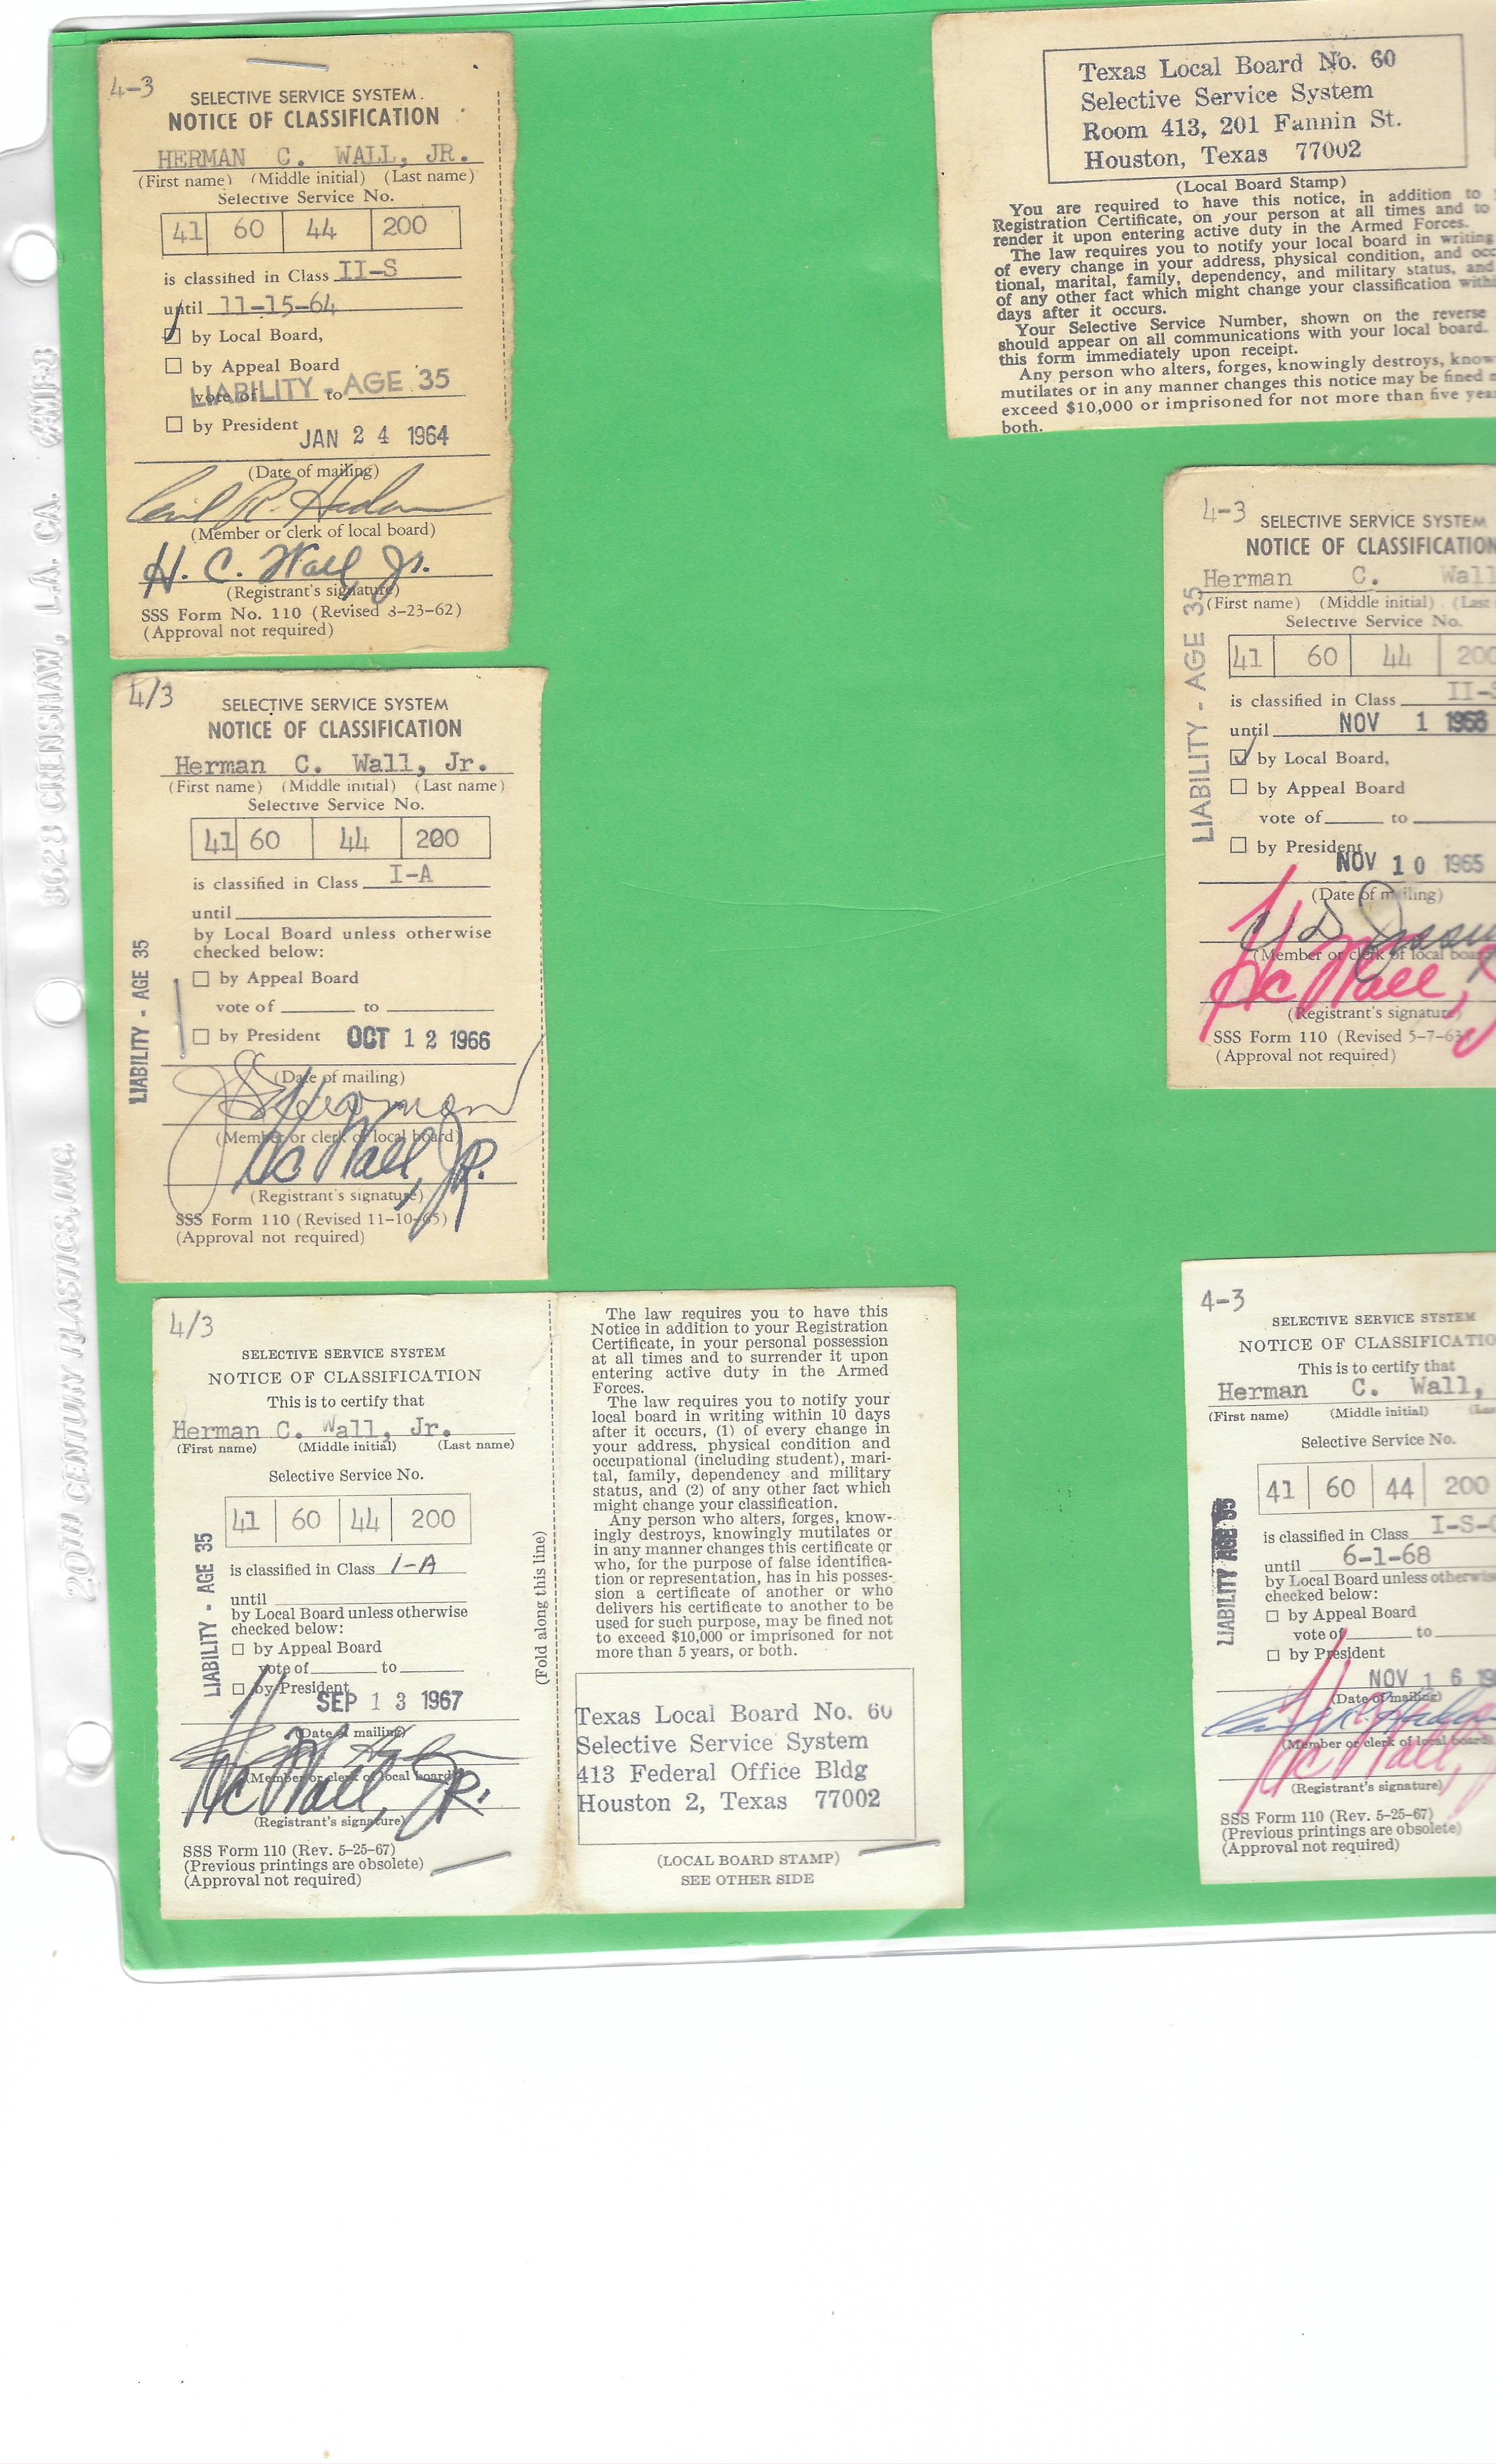 4-3
SELECTIVE SERVICE SYSTEM
NOTICE OF CLASSIFICATION
HERMAN C. WALL, JR.
(First name) (Middle initial) (Last name)
Selective Service No.
41 60 44 200
is classified in Class II-S
until 11-15-64
by Local Board,
by Appeal Board
vote of to
LIABILITY - AGE 35
by President
JAN 24 1964
(Date of mailing)
(Member or clerk of local board)
H. C. Wall, Jr.
(Registrant's signature)
SSS Form No. 110 (Revised 3-23-62)
(Approval not required)
Texas Local Board No. 60
Selective Service System
Room 413, 201 Fannin St.
Houston, Texas 77002
(Local Board Stamp)
You are required to have this notice, in addition to
Registration Certificate, on your person at all times and to
render it upon entering active duty in the Armed Forces.
The law requires you to notify your local board in writing
of every change in your address, physical condition, and occ
tional, marital, family, dependency, and military status, and
of any other fact which might change your classification with
days after it occurs.
Your Selective Service Number, shown on the reverse
should appear on all communications with your local board.
this form immediately upon receipt.
Any person who alters, forges, knowingly destroys, know
mutilates or in any manner changes this notice may be fined
exceed $10,000 or imprisoned for not more than five yea
both.
4-3
SELECTIVE SERVICE SYSTEM
NOTICE OF CLASSIFICATION
Herman C. Wall
(First name) (Middle initial) (Last
Selective Service No.
41 60 44 200
is classified in Class II-S
until NOV 1 1966
by Local Board,
by Appeal Board
vote of to
by President
NOV 10 1965
(Date of mailing)
(Member or clerk of local board
HC Wall, J
(Registrant's signature)
SSS Form 110 (Revised 5-7-63)
(Approval not required)
LIABILITY - AGE 35
4/3
SELECTIVE SERVICE SYSTEM
NOTICE OF CLASSIFICATION
Herman C. Wall, Jr.
(First name) (Middle initial) (Last name)
Selective Service No.
41 60 44 200
is classified in Class I-A
until
by Local Board unless otherwise
checked below:
by Appeal Board
vote of to
by President OCT 12 1966
(Date of mailing)
(Member or clerk of local board)
HC Wall, JR.
(Registrant's signature)
SSS Form 110 (Revised 11-10-65)
(Approval not required)
LIABILITY - AGE 35
4/3
SELECTIVE SERVICE SYSTEM
NOTICE OF CLASSIFICATION
This is to certify that
Herman C. Wall, Jr.
(First name) (Middle initial) (Last name)
Selective Service No.
41 60 44 200
is classified in Class I-A
until
by Local Board unless otherwise
checked below:
by Appeal Board
vote of to
by President
SEP 13 1967
(Date of mailing)
(Member or clerk of local board)
HC Wall, JR.
(Registrant's signature)
SSS Form 110 (Rev. 5-25-67)
(Previous printings are obsolete)
(Approval not required)
LIABILITY - AGE 35
(Fold along this line)
The law requires you to have this
Notice in addition to your Registration
Certificate, in your personal possession
at all times and to surrender it upon
entering active duty in the Armed
Forces.
The law requires you to notify your
local board in writing within 10 days
after it occurs, (1) of every change in
your address, physical condition and
occupational (including student), mari-
tal, family, dependency and military
status, and (2) of any other fact which
might change your classification.
Any person who alters, forges, know-
ingly destroys, knowingly mutilates or
in any manner changes this certificate or
who, for the purpose of false identifica-
tion or representation, has in his posses-
sion a certificate of another or who
delivers his certificate to another to be
used for such purpose, may be fined not
to exceed $10,000 or imprisoned for not
more than 5 years, or both.
Texas Local Board No. 60
Selective Service System
413 Federal Office Bldg
Houston 2, Texas 77002
(LOCAL BOARD STAMP)
SEE OTHER SIDE
4-3
SELECTIVE SERVICE SYSTEM
NOTICE OF CLASSIFICATIO
This is to certify that
Herman C. Wall,
(First name) (Middle initial) (Las
Selective Service No.
41 60 44 200
is classified in Class I-S-C
until 6-1-68
by Local Board unless otherwise
checked below:
by Appeal Board
vote of to
by President
NOV 16 19
(Date of mailing)
(Member or clerk of local board)
HC Wall,
(Registrant's signature)
SSS Form 110 (Rev. 5-25-67)
(Previous printings are obsolete)
(Approval not required)
LIABILITY AGE 35
20TH CENTURY PLASTICS, INC. 3628 CRENSHAW, L.A. CA.